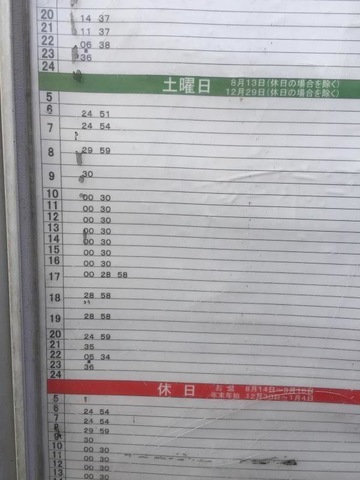 20 14 37
21 11 37
22 06 38
23 36
24
土曜日 8月13日(休日の場合を除く)
12月29日(休日の場合を除く)
5
6 24 51
7 24 54
8 29 59
9 30
10 00 30
11 00 30
12 00 30
13 00 30
14 00 30
15 00 30
16 00 30
17 00 28 58
18 28 58
19 28 58
20 24 59
21 35
22 05 34
23 36
24
休日 お盆 8月14日～8月16日
年末年始 12月30日～1月4日
5
6 24 54
7 24 54
8 29 59
9 30
10 00 30
11 00 30
00 30